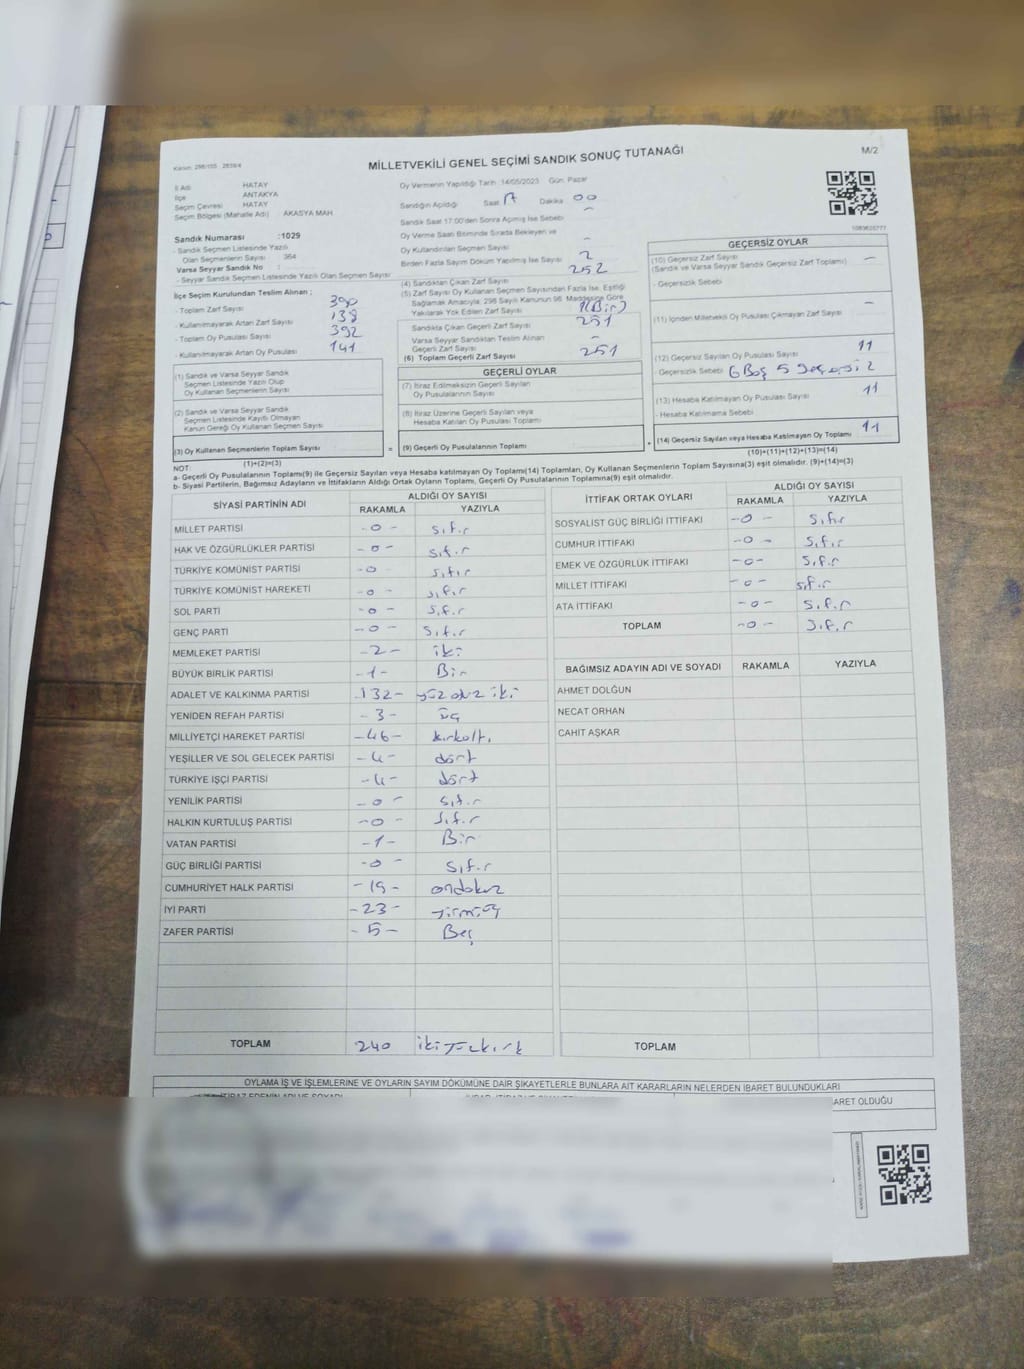 MİLLETVEKİLİ GENEL SEÇİMİ SANDIK SONUÇ TUTANAĞI
M/2
İl Adı HATAY
İlçe ANTAKYA
Seçim Çevresi HATAY
Seçim Bölgesi (Mahalle Adı) AKASYA MAH.
Sandık Numarası :1029
- Sandık Seçmen Listesinde Yazılı
Olan Seçmenlerin Sayısı 364
Varsa Seyyar Sandık No :
- Seyyar Sandık Seçmen Listesinde Yazılı Olan Seçmen Sayısı
İlçe Seçim Kurulundan Teslim Alınan ;
- Toplam Zarf Sayısı 390
- Kullanılmayarak Artan Zarf Sayısı 138
- Toplam Oy Pusulası Sayısı 392
- Kullanılmayarak Artan Oy Pusulası 141
(1) Sandık ve Varsa Seyyar Sandık
Seçmen Listesinde Yazılı Olup
Oy Kullanan Seçmenlerin Sayısı
(2) Sandık ve Varsa Seyyar Sandık
Seçmen Listesinde Kayıtlı Olmayan
Kanun Gereği Oy Kullanan Seçmen Sayısı
(3) Oy Kullanan Seçmenlerin Toplam Sayısı
(1)+(2)=(3)
Oy Vermenin Yapıldığı Tarih :14/05/2023 Gün: Pazar
Sandığın Açıldığı Saat 17 Dakika 00
Sandık Saat 17:00'den Sonra Açılmış İse Sebebi -
Oy Verme Saati Bitiminde Sırada Bekleyen ve
Oy Kullandırılan Seçmen Sayısı -
Birden Fazla Sayım Dökümü Yapılmış İse Sayısı 2
(4) Sandıktan Çıkan Zarf Sayısı 252
(5) Zarf Sayısı Oy Kullanan Seçmen Sayısından Fazla İse, Eşitliği
Sağlamak Amacıyla, 298 Sayılı Kanunun 98. Maddesine Göre
Yakılarak Yok Edilen Zarf Sayısı 1(Bir)
Sandıkta Çıkan Geçerli Zarf Sayısı 251
Varsa Seyyar Sandıktan Teslim Alınan
Geçerli Zarf Sayısı
(6) Toplam Geçerli Zarf Sayısı 251
GEÇERLİ OYLAR
(7) İtiraz Edilmeksizin Geçerli Sayılan
Oy Pusulalarının Sayısı
(8) İtiraz Üzerine Geçerli Sayılan veya
Hesaba Katılan Oy Pusulası Toplamı
= (9) Geçerli Oy Pusulalarının Toplamı +
GEÇERSİZ OYLAR
(10) Geçersiz Zarf Sayısı -
(Sandık ve Varsa Seyyar Sandık Geçersiz Zarf Toplamı)
- Geçersizlik Sebebi
(11) İçinden Milletvekili Oy Pusulası Çıkmayan Zarf Sayısı -
(12) Geçersiz Sayılan Oy Pusulası Sayısı 11
- Geçersizlik Sebebi 6 Boş 5
(13) Hesaba Katılmayan Oy Pusulası Sayısı 11
- Hesaba Katılmama Sebebi
(14) Geçersiz Sayılan veya Hesaba Katılmayan Oy Toplamı 11
(10)+(11)+(12)+(13)=(14)
NOT:
a- Geçerli Oy Pusulalarının Toplamı(9) ile Geçersiz Sayılan veya Hesaba katılmayan Oy Toplamı(14) Toplamları, Oy Kullanan Seçmenlerin Toplam Sayısına(3) eşit olmalıdır. (9)+(14)=(3)
b- Siyasi Partilerin, Bağımsız Adayların ve İttifakların Aldığı Ortak Oyların Toplamı, Geçerli Oy Pusulalarının Toplamına(9) eşit olmalıdır.
SİYASİ PARTİNİN ADI ALDIĞI OY SAYISI
RAKAMLA YAZIYLA
MİLLET PARTİSİ -0- sıfır
HAK VE ÖZGÜRLÜKLER PARTİSİ -0- sıfır
TÜRKİYE KOMÜNİST PARTİSİ -0 sıfır
TÜRKİYE KOMÜNİST HAREKETİ -0- sıfır
SOL PARTİ -0- sıfır
GENÇ PARTİ -0- sıfır
MEMLEKET PARTİSİ -2- iki
BÜYÜK BİRLİK PARTİSİ -1- Bir
ADALET VE KALKINMA PARTİSİ -132- yüz otuz iki
YENİDEN REFAH PARTİSİ -3- üç
MİLLİYETÇİ HAREKET PARTİSİ -46- kırkaltı
YEŞİLLER VE SOL GELECEK PARTİSİ -4- dört
TÜRKİYE İŞÇİ PARTİSİ -4- dört
YENİLİK PARTİSİ -0- sıfır
HALKIN KURTULUŞ PARTİSİ -0- sıfır
VATAN PARTİSİ -1- Bir
GÜÇ BİRLİĞİ PARTİSİ -0- sıfır
CUMHURİYET HALK PARTİSİ -19- ondokuz
İYİ PARTİ -23- yirmiüç
ZAFER PARTİSİ -5- Beş
TOPLAM 240 ikiYüzkırk
İTTİFAK ORTAK OYLARI ALDIĞI OY SAYISI
RAKAMLA YAZIYLA
SOSYALİST GÜÇ BİRLİĞİ İTTİFAKI -0- sıfır
CUMHUR İTTİFAKI -0- sıfır
EMEK VE ÖZGÜRLÜK İTTİFAKI -0- sıfır
MİLLET İTTİFAKI -0- sıfır
ATA İTTİFAKI -0- sıfır
TOPLAM -0- sıfır
BAĞIMSIZ ADAYIN ADI VE SOYADI RAKAMLA YAZIYLA
AHMET DOLĞUN
NECAT ORHAN
CAHİT AŞKAR
TOPLAM
OYLAMA İŞ VE İŞLEMLERİNE VE OYLARIN SAYIM DÖKÜMÜNE DAİR ŞİKAYETLERLE BUNLARA AİT KARARLARIN NELERDEN İBARET BULUNDUKLARI
ARET OLDUĞU